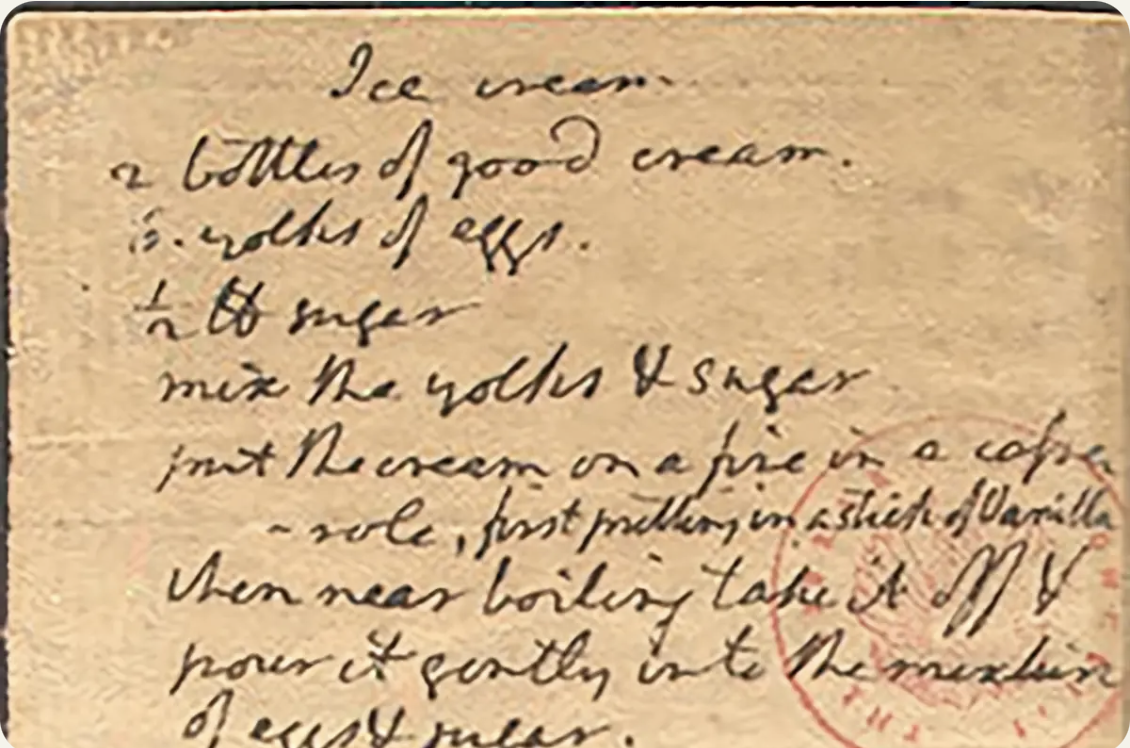 Ice cream.
2 bottles of good cream.
6. yolks of eggs.
1/2 ℔ sugar
mix the yolks & sugar
put the cream on a fire in a casse
- role, first putting in a stick of Vanilla
when near boiling take it off &
pour it gently into the mixture
of eggs & sugar.